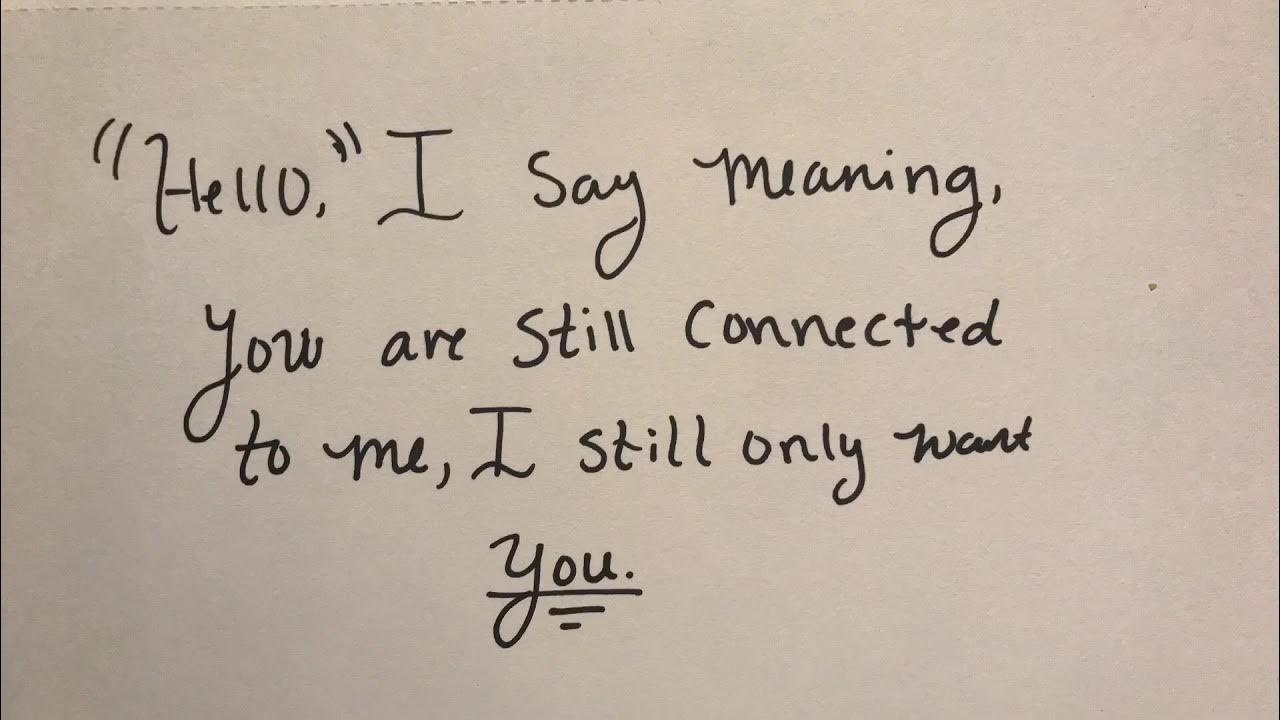 "Hello," I say meaning,
you are still connected
to me, I still only want
you.